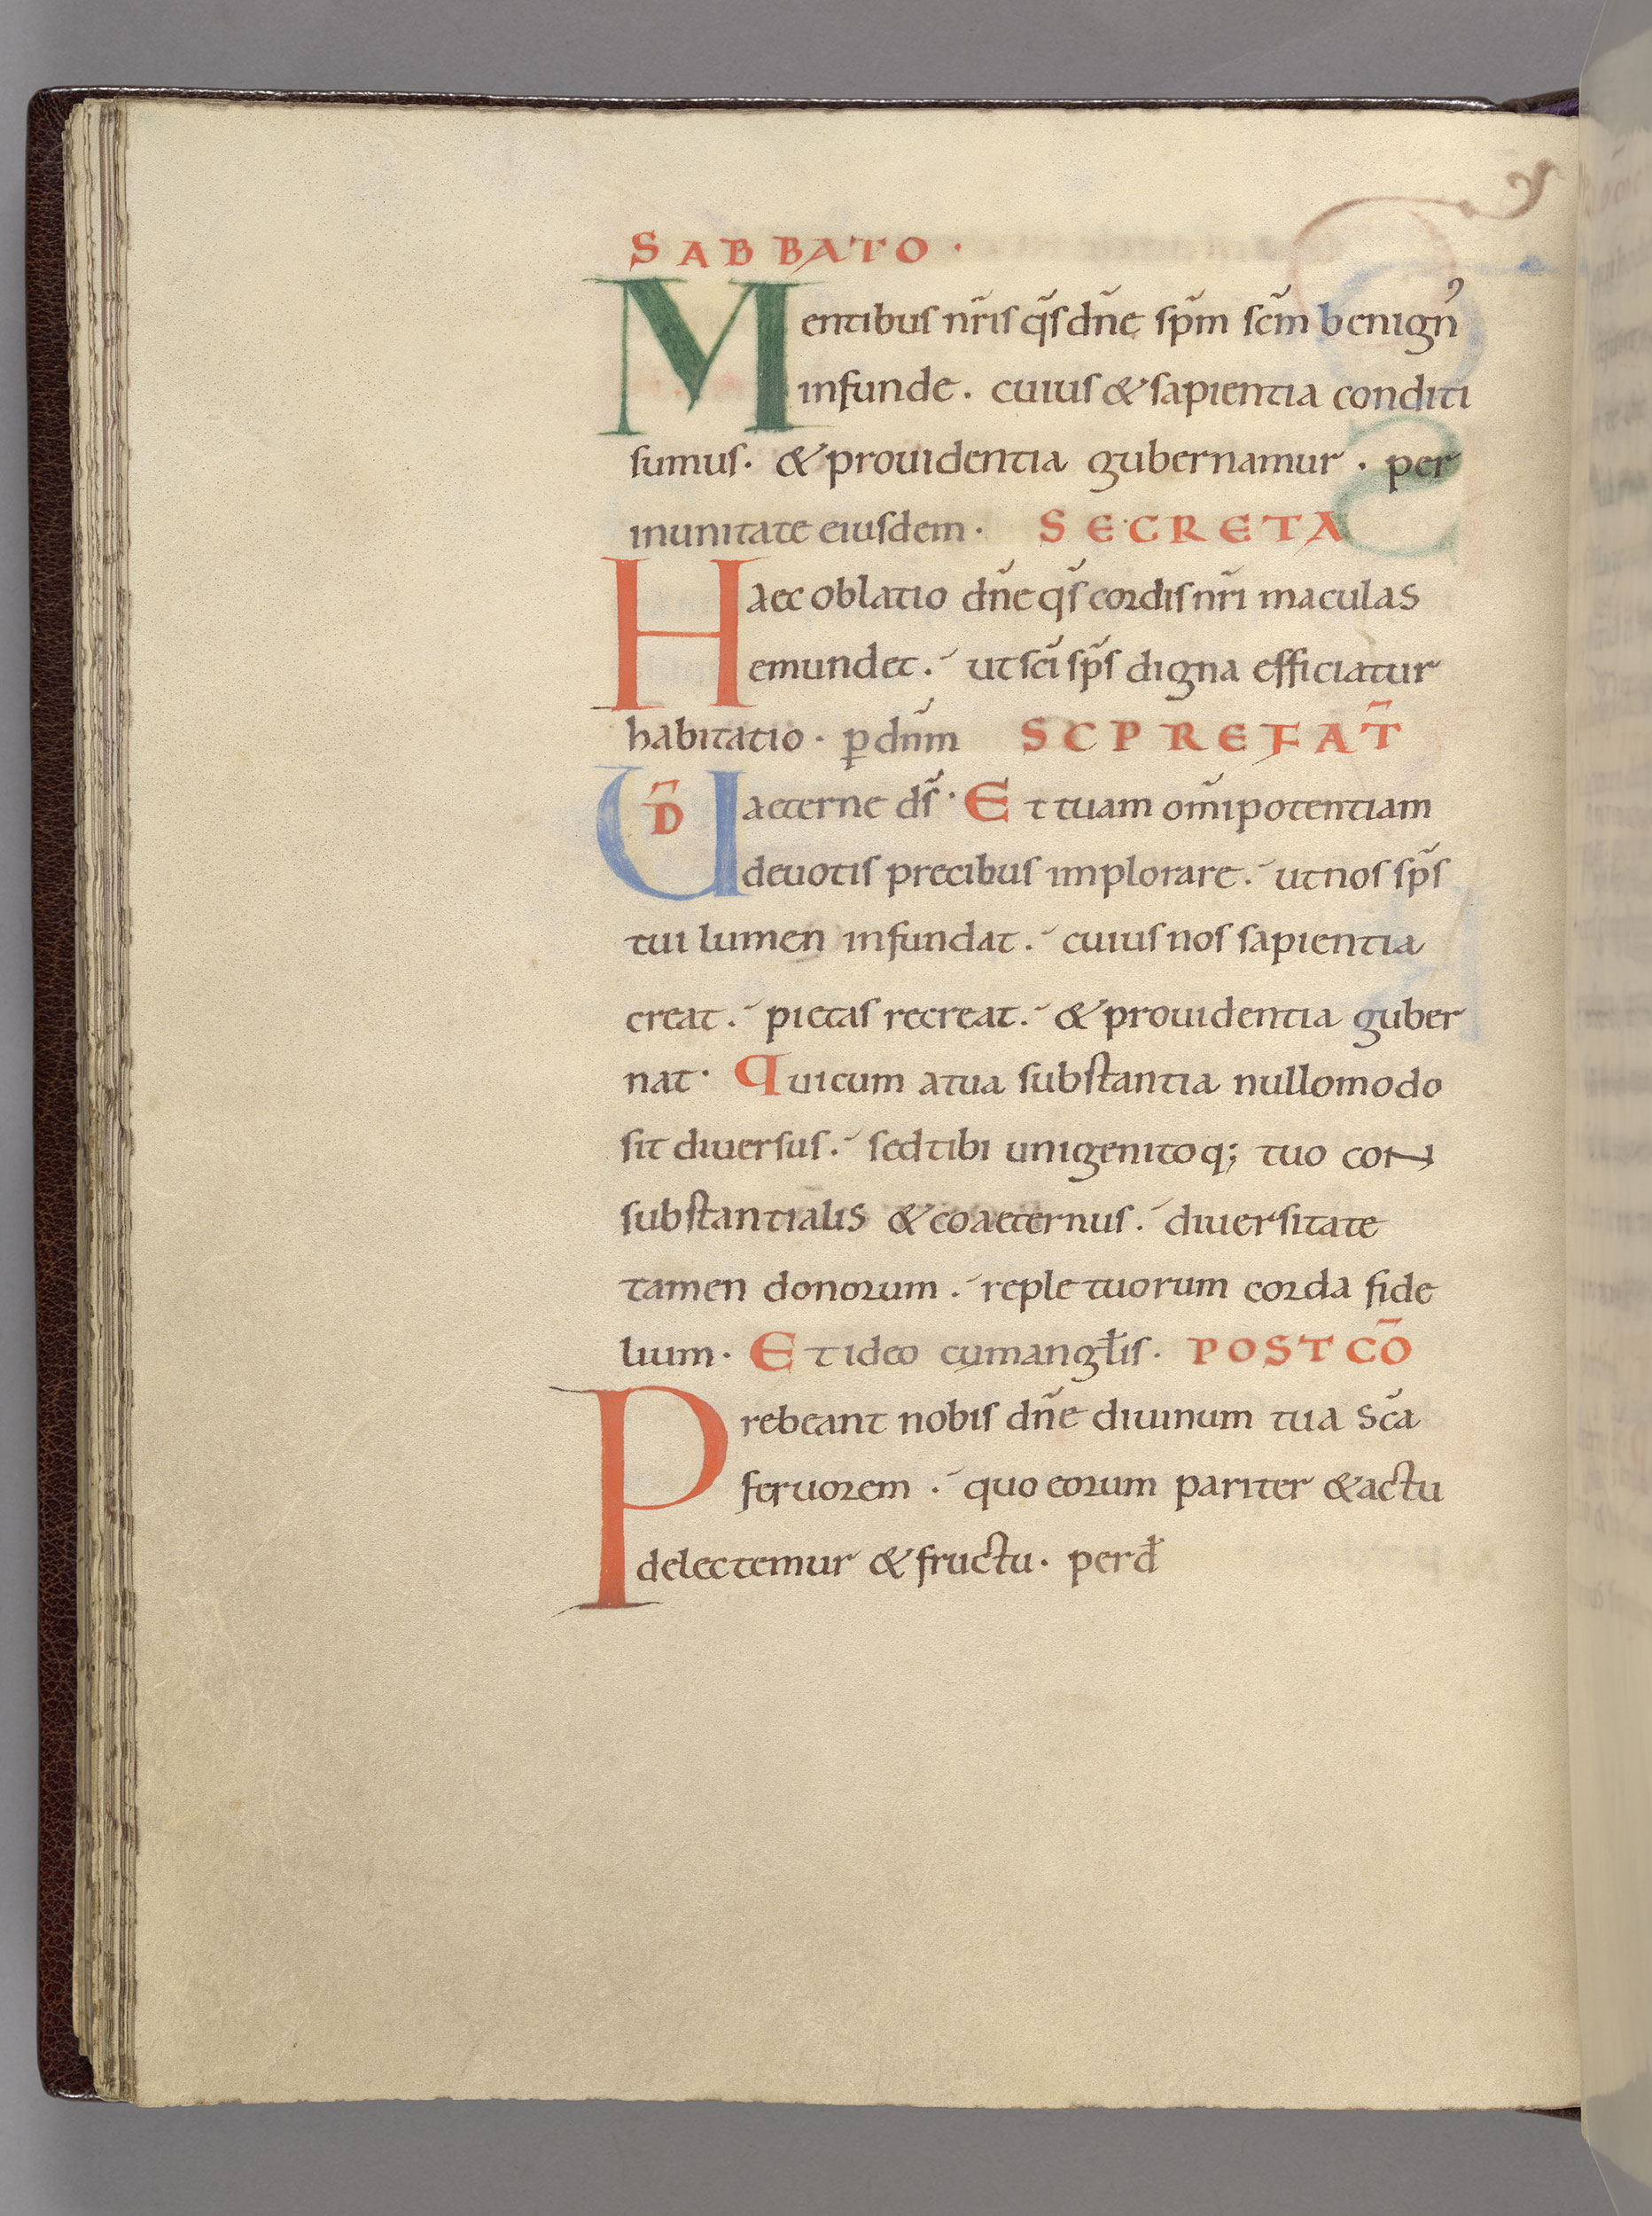 SABBATO ·
Mentibus nr̃is q̃s dñe sp̃m sc̃m benignꝰ
infunde. cuius & sapientia conditi
sumus· & prouidentia gubernamur · per
in unitate eiusdem· SECRETA
Haec oblatio dñe q̃s cordis nr̃i maculas
emundet.´ ut sc̃i sp̃s digna efficiatur
habitatio · ꝑ dñm SCPREFAT̃
UD̃ aeterne ds̃ · Et tuam om̃ipotentiam
deuotis precibus implorare.´ ut nos sp̃s
tui lumen infundat.´ cuius nos sapientia
creat.´ pietas recreat.´ & prouidentia guber
nat· Qui cum a tua substantia nullomodo
sit diuersus.´ sed tibi unigenitoq; tuo con
substantialis & coaeternus.´ diuersitate
tamen donorum.´ reple tuorum corda fide
lium· Et ideo cum angłis· POST CÕ
Prebeant nobis dñe diuinum tua sc̃a
feruorem .´ quo eorum pariter & actu
delectemur & fructu· per đ